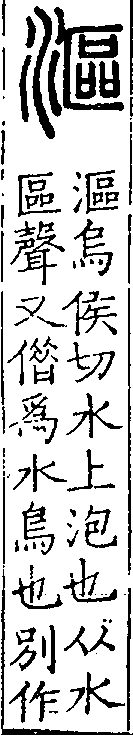 漚
漚烏侯切水上泡也从水
區聲又僭爲水鳥也別作